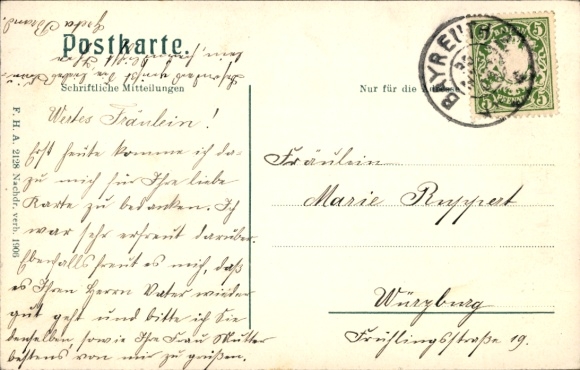 Postkarte.
Schriftliche Mitteilungen
Nur für die Adresse
BAYREUTH
5 5
PFENNIG
F. H. A. 2128 Nachdr. verb. 1906
Wertes Fräulein!
Erst heute komme ich da-
zu mich für Ihre liebe
Karte zu bedanken. Ich
war sehr erfreut darüber.
Ebenfalls freut es mich, daß
es Ihrem Herrn Vater wieder
gut geht und bitte ich Sie
denselben, sowie Ihre Frau Mutter
bestens von mir zu grüßen.
Fräulein
Marie Ruppert
Würzburg
Frühlingsstraße 19.